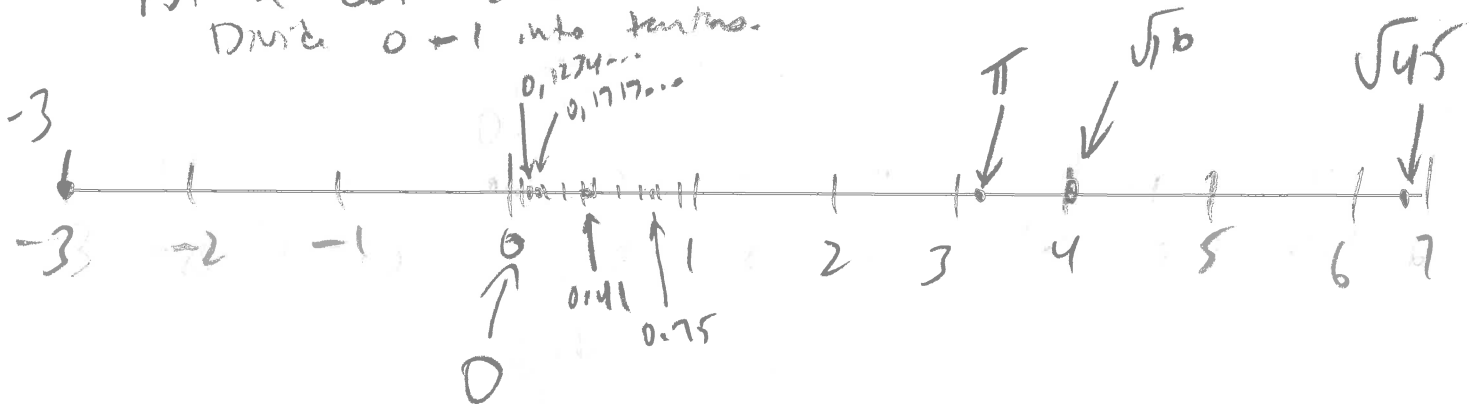 Divide 0-1 into tenths.
0,1234...
0,1717...
π
√16
√45
-3
-3 -2 -1 0 1 2 3 4 5 6 7
0.41
0.75
0